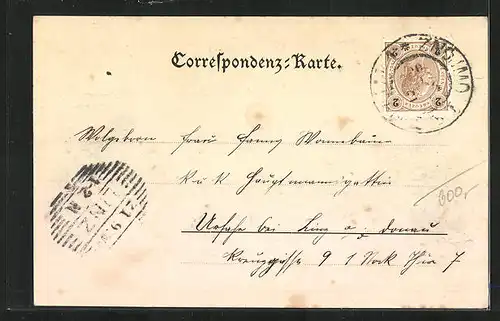 ZNOJMO
2 2
Correspondenz-Karte.
Wolgeboren Frau Fanny
k u k Hauptmannsgattin
Urfahr bei Linz a. Donau
Kreuzgasse 9 1 Stock Thür 7
600,-